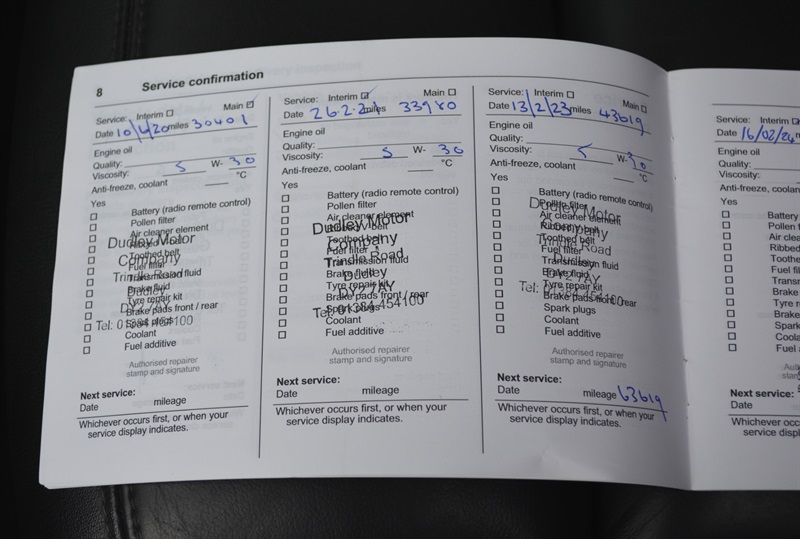 8 Service confirmation
Service: Interim ☐ Main ☑
Date 10/4/20 miles 30401
Engine oil
Quality:
Viscosity: 5 W- 30
Anti-freeze, coolant °C
Yes
☐ Battery (radio remote control)
☐ Pollen filter
☐ Air cleaner element
☐ Toothed belt
☐ Fuel filter
☐ Transmission fluid
☐ Brake fluid
☐ Tyre repair kit
☐ Brake pads front / rear
☐ Spark plugs
☐ Coolant
☐ Fuel additive
Dudley Motor
Company
Trindle Road
Dudley
DY2 7AY
Tel: 01384 454100
Authorised repairer
stamp and signature
Next service:
Date mileage
Whichever occurs first, or when your
service display indicates.
Service: Interim ☑ Main ☐
Date 26.2.21 miles 33980
Engine oil
Quality:
Viscosity: 5 W- 30
Anti-freeze, coolant °C
Yes
☐ Battery (radio remote control)
☐ Pollen filter
☐ Air cleaner element
☐ Toothed belt
☐ Fuel filter
☐ Transmission fluid
☐ Brake fluid
☐ Tyre repair kit
☐ Brake pads front / rear
☐ Spark plugs
☐ Coolant
☐ Fuel additive
Dudley Motor
Company
Trindle Road
Dudley
DY2 7AY
Tel: 01384 454100
Authorised repairer
stamp and signature
Next service:
Date mileage
Whichever occurs first, or when your
service display indicates.
Service: Interim ☐ Main ☐
Date 13/2/23 miles 43619
Engine oil
Quality:
Viscosity: 5 W- 30
Anti-freeze, coolant °C
Yes
☐ Battery (radio remote control)
☐ Pollen filter
☐ Air cleaner element
☐ Ribbed V belt
☐ Toothed belt
☐ Fuel filter
☐ Transmission fluid
☐ Brake fluid
☐ Tyre repair kit
☐ Brake pads front / rear
☐ Spark plugs
☐ Coolant
☐ Fuel additive
Dudley Motor
Company
Trindle Road
Dudley
DY2 7AY
Tel: 01384 454100
Authorised repairer
stamp and signature
Next service:
Date mileage 63619
Whichever occurs first, or when your
service display indicates.
Service: Interim
Date 16/02/24
Engine oil
Quality:
Viscosity:
Anti-freeze, coolant
Yes
☐ Battery
☐ Pollen
☐ Air
☐ Ribbed
☐ Fuel
☐ Brake
☐ Tyre
☐ Brake
☐ Spark
☐ Fuel
Next service:
Date
Whichever occurs
service